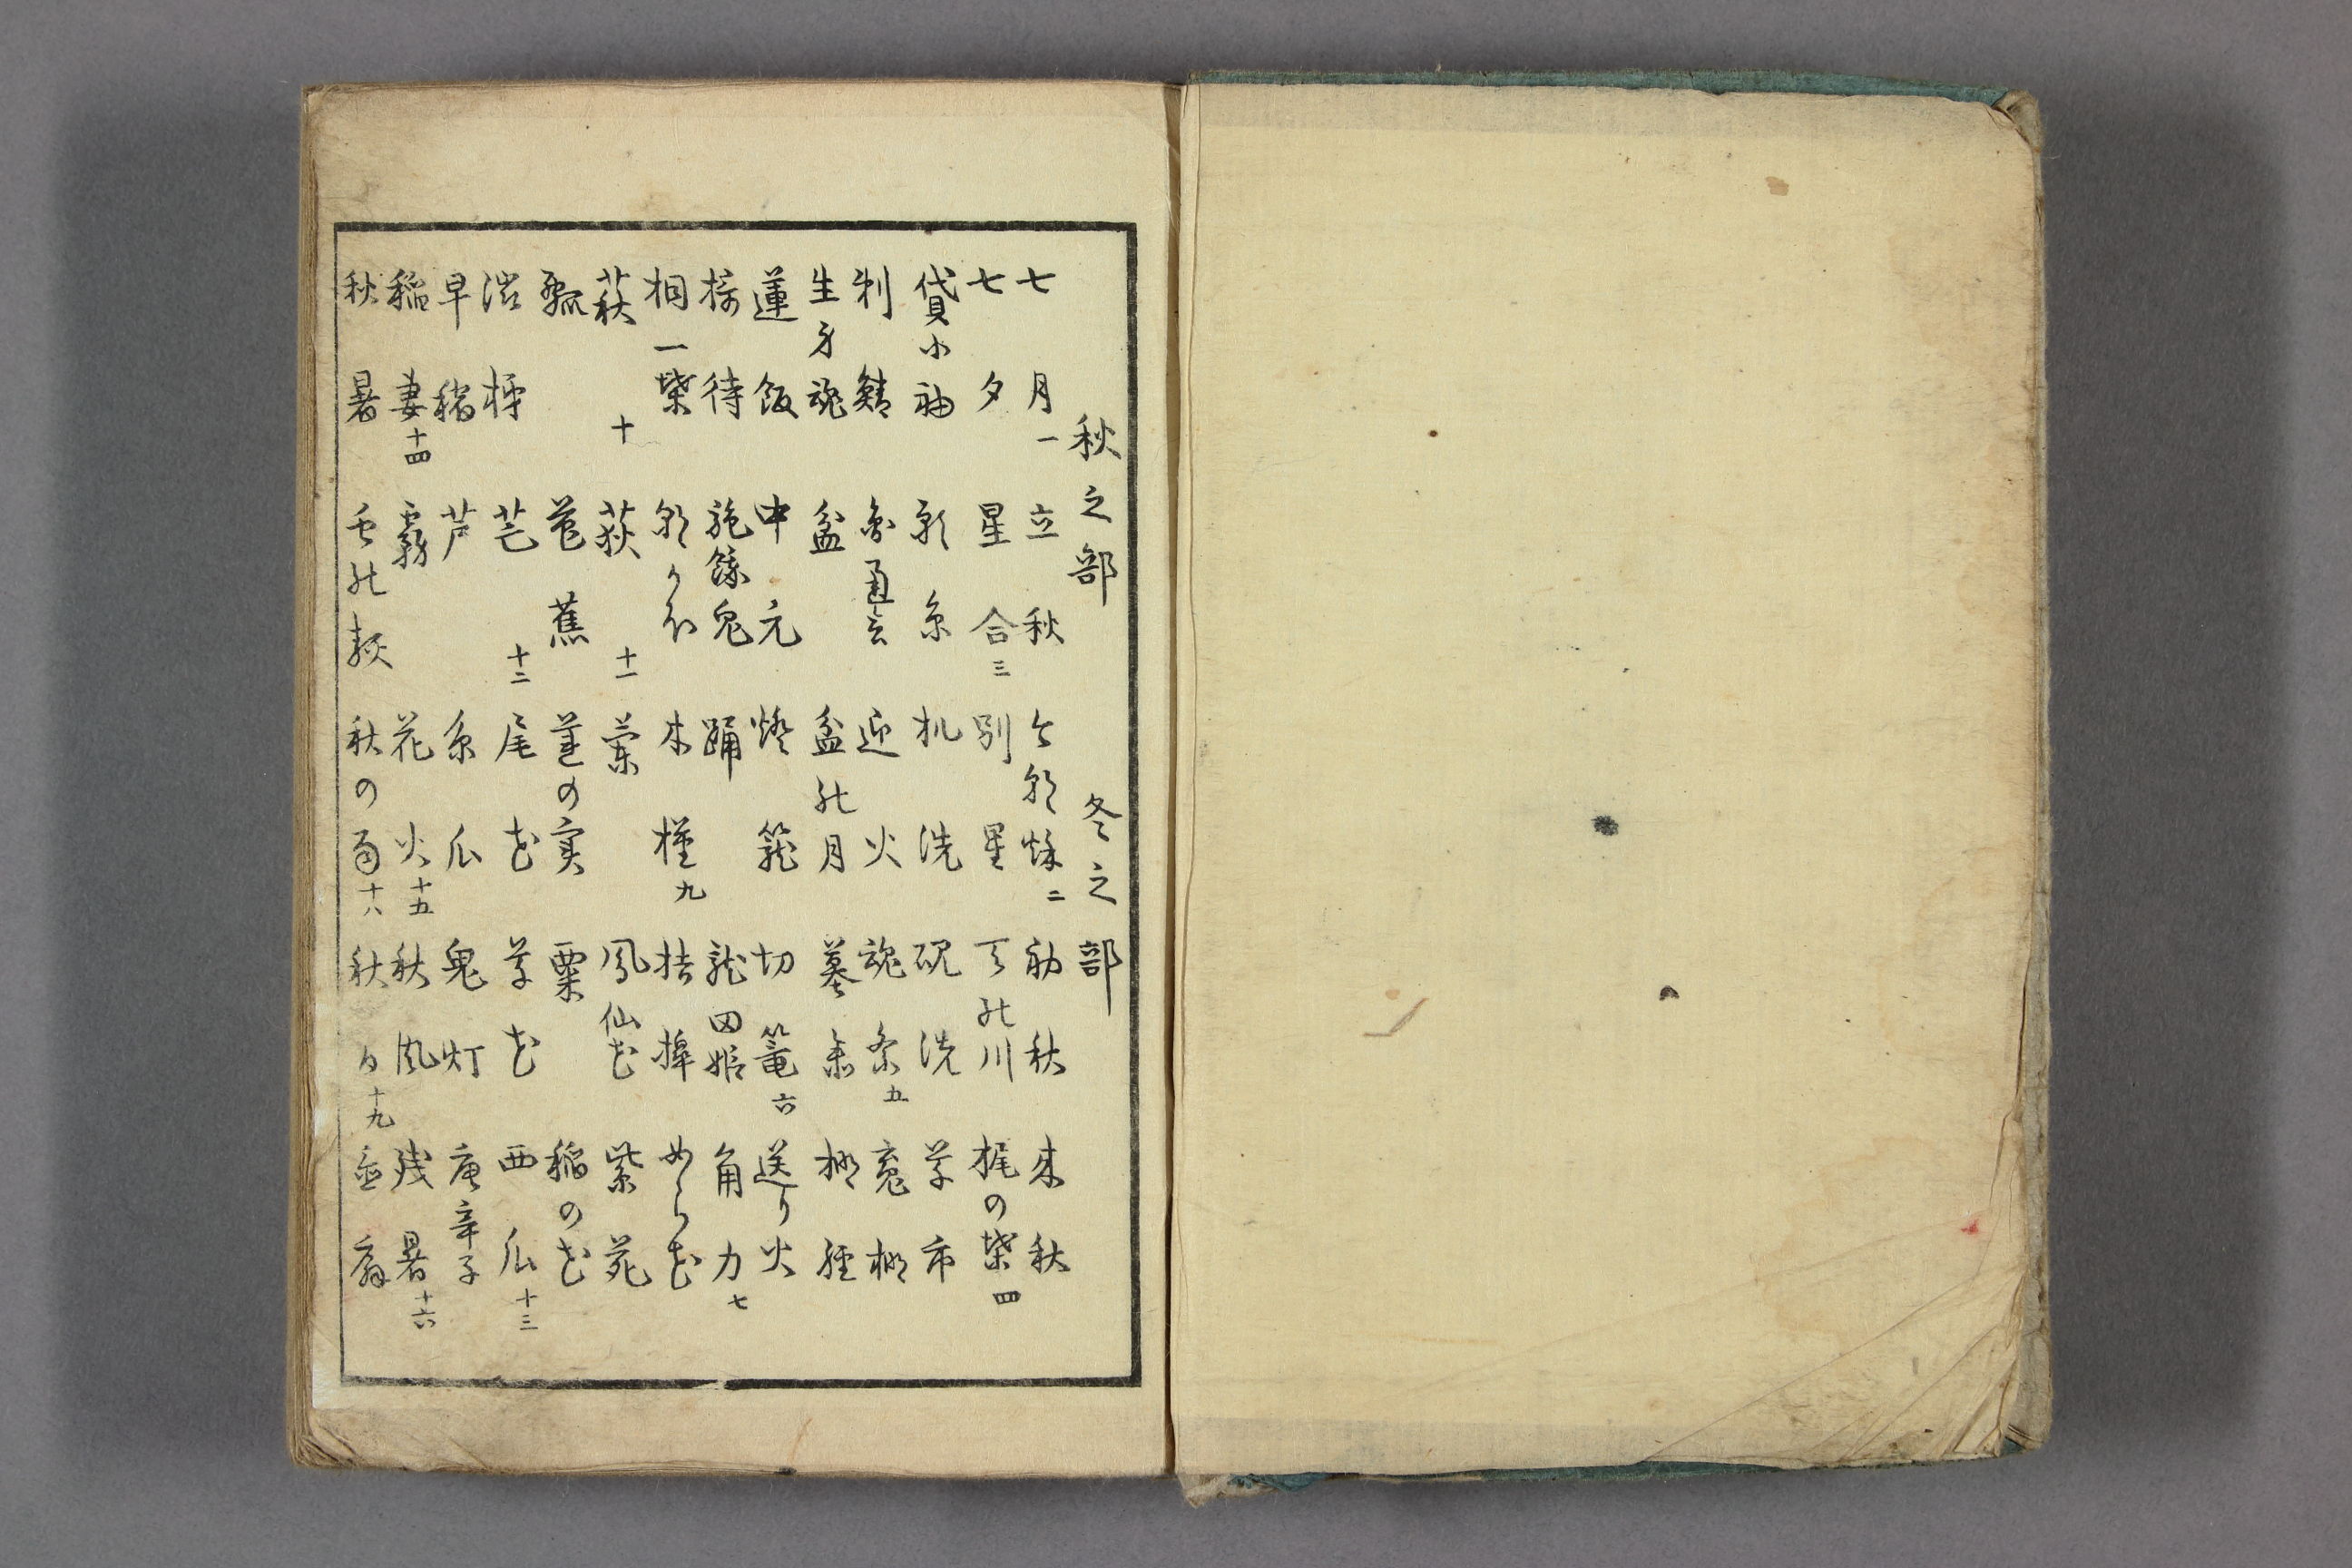 秋之部 冬之部
七月一 立秋 今朝秋二 初秋 来秋
七夕 星合三 別星 天の川 梶の葉四
貸小袖 願糸 机洗 硯洗 草市
刺鯖 迎火 魂祭五 魂棚
生身魂 盆 盆の月 墓参 棚経
蓮飯 中元 燈籠 切篭六 送り火
摂待 施餓鬼 踊 龍田姫 角力七
桐一葉 朝かほ 木槿九 桔梗
萩十 荻十一 蘭 鳳仙花 紫苑
瓢 芭蕉 蓮の実 粟 稲の花
渋柿 芒十二 尾花 草花 西瓜十三
早稲 芦 糸瓜 鬼灯 唐辛子
稲妻十四 霧 花火十五 秋風 残暑十六
秋暑 虫の類 秋の雨十八 秋 十九 扇